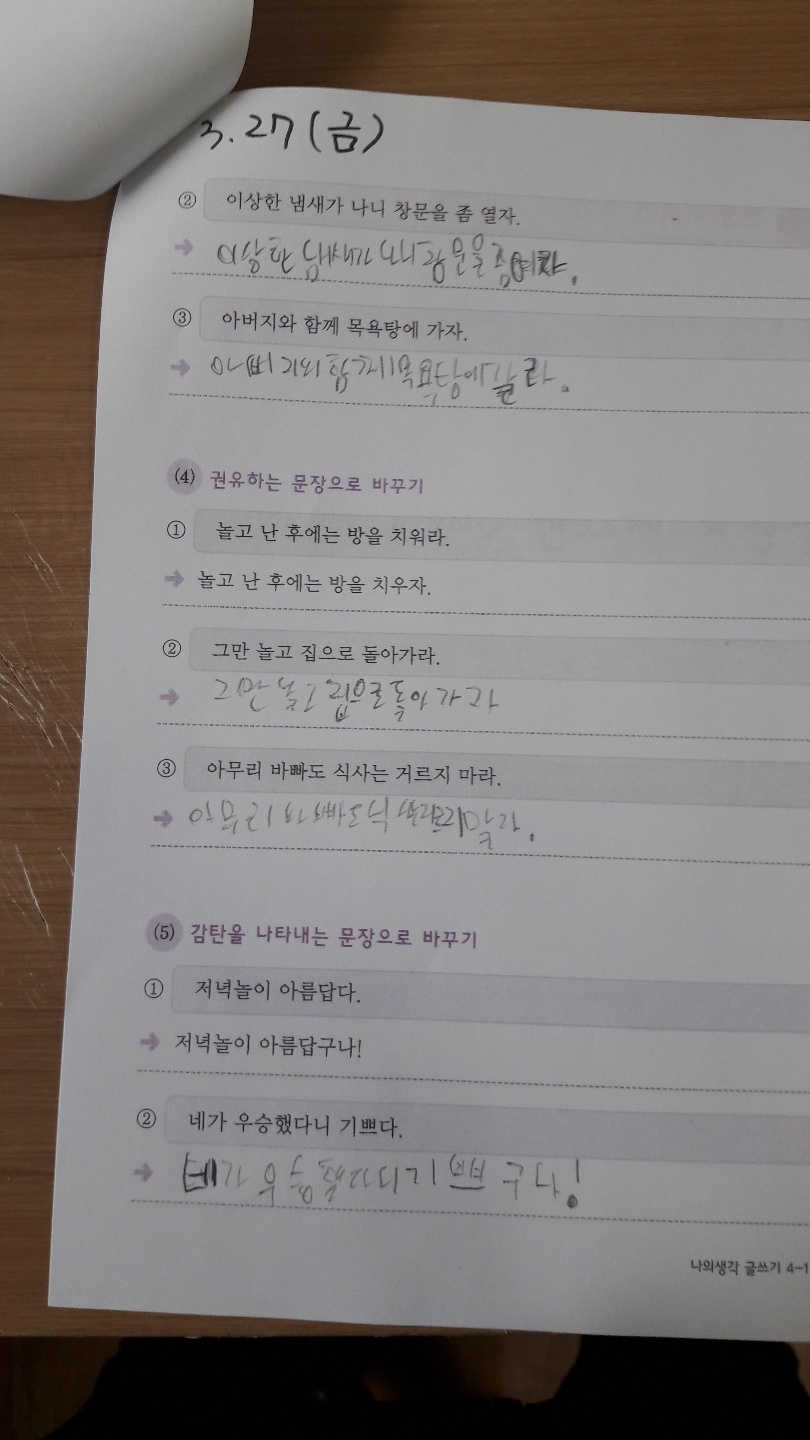 3.27(금)
② 이상한 냄새가 나니 창문을 좀 열자.
➔ 이상한 냄새가 나니 창문을 좀
③ 아버지와 함께 목욕탕에 가자.
➔ 아버지와 함께 목욕탕에 갈라.
(4) 권유하는 문장으로 바꾸기
① 놀고 난 후에는 방을 치워라.
➔ 놀고 난 후에는 방을 치우자.
② 그만 놀고 집으로 돌아가라.
➔ 그만 놀고 집으로 돌아가자
③ 아무리 바빠도 식사는 거르지 마라.
➔ 아무리 바빠도 식 말라.
(5) 감탄을 나타내는 문장으로 바꾸기
① 저녁놀이 아름답다.
➔ 저녁놀이 아름답구나!
② 네가 우승했다니 기쁘다.
➔ 네가 우승했다니 기쁘구나!
나의생각 글쓰기 4-1